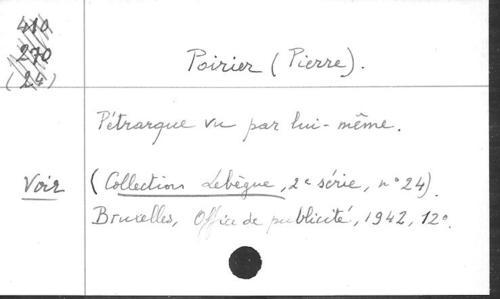 410
270
(24)
Poirier (Pierre).
Pétrarque vu par lui-même.
Voir (Collection Lebègue, 2e série, n° 24).
Bruxelles, Office de publicité, 1942, 12°.